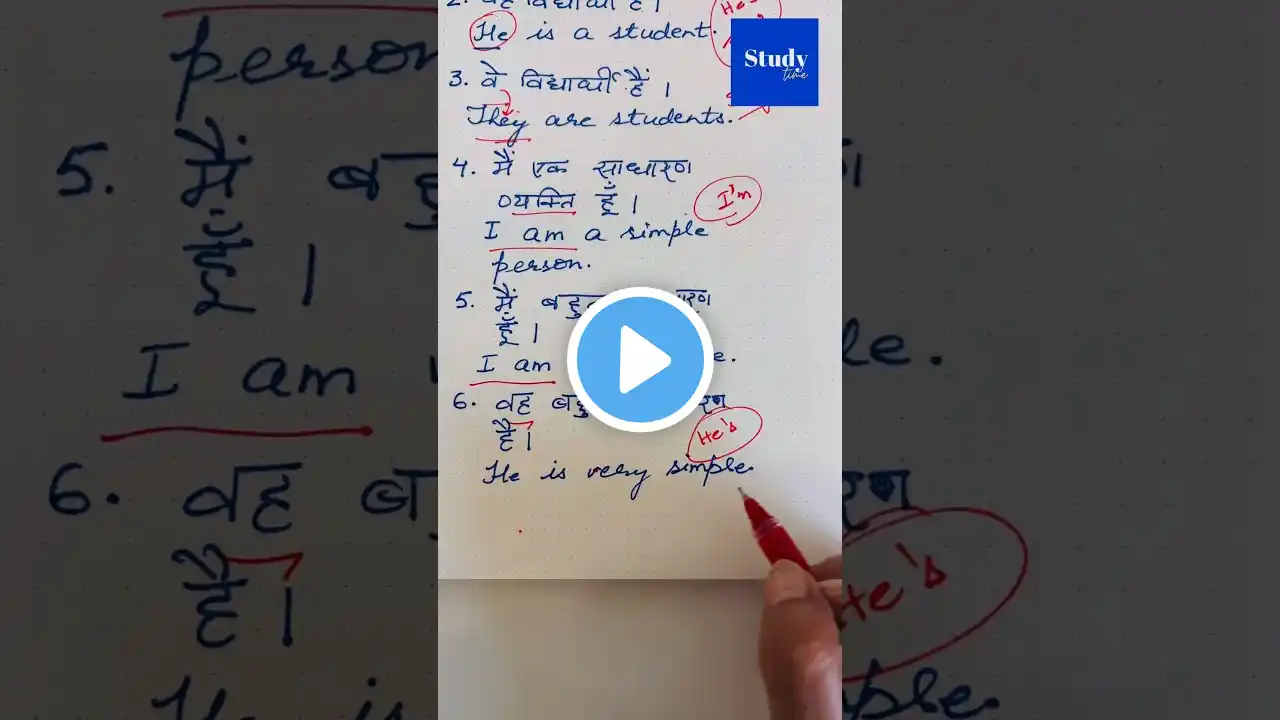 2. वह विद्यार्थी है।
He is a student.
Study
time
3. वे विद्यार्थी हैं।
They are students.
4. मैं एक साधारण
व्यक्ति हूँ। I'm
I am a simple
person.
5. मैं
हूँ।
I am
6. वह
है। He's
He is very simple.